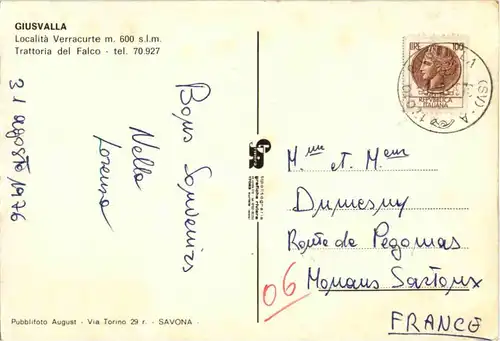 GIUSVALLA
Località Verracurte m. 600 s.l.m.
Trattoria del Falco - tel. 70.927
31 agosto 1976
Bons Souvenirs
Nella
Lorenzo
LIRE 100
REPVBBLICA
ITALIANA
(SV)
Mme et Meur
Dumesny
Route de Pegomas
06 Mouans Sartoux
FRANCE
Pubblifoto August - Via Torino 29 r. - SAVONA -